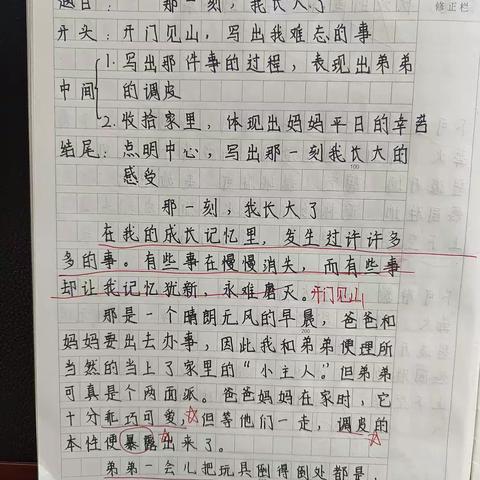 题目： 那一刻，我长大了
修正栏
开头：开门见山，写出我难忘的事
1.写出那件事的过程，表现出弟弟
中间 的调皮
2.收拾家里，体现出妈妈平日的辛苦
结尾：点明中心，写出那一刻我长大的
100
感受
那一刻，我长大了
在我的成长记忆里，发生过许许多
多的事。有些事在慢慢消失，而有些事
却让我记忆犹新，永难磨灭。开门见山
那是一个晴朗无风的早晨，爸爸和
200
妈妈要出去办事，因此我和弟弟便理所
当然的当上了家里的“小主人”。但弟弟
可真是个两面派。爸爸妈妈在家时，它
十分乖巧可爱，但等他们一走，调皮的
本性便暴露出来了。
弟弟一会儿把玩具倒得到处都是，